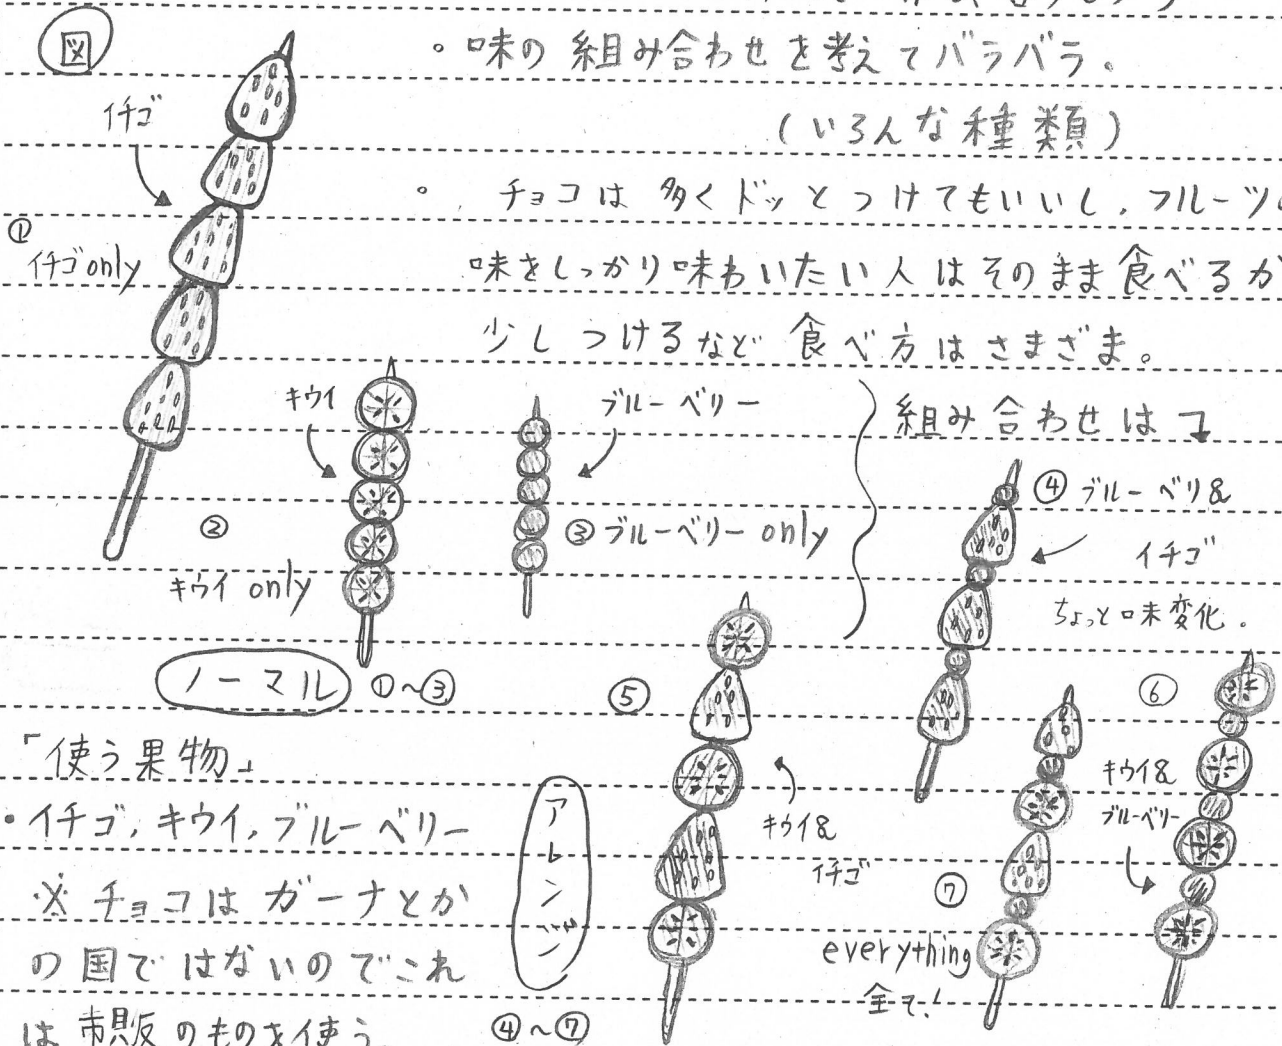 図
・味の組み合わせを考えてバラバラ。
(いろんな種類)
・チョコは多くドッとつけてもいいし、フルーツ
味をしっかり味わいたい人はそのまま食べるか
少しつけるなど食べ方はさまざま。
イチゴ
①
イチゴonly
キウイ
②
キウイ only
ブルーベリー
③ブルーベリー only
ノーマル ①~③
組み合わせは
④ブルーベリ&
イチゴ
ちょっと味変化。
⑤
キウイ&
イチゴ
⑥
キウイ&
ブルーベリー
⑦
everything
全て!
アレンジ
④~⑦
「使う果物」
・イチゴ,キウイ,ブルーベリー
※チョコはガーナとか
の国ではないのでこれ
は市販のものを使う